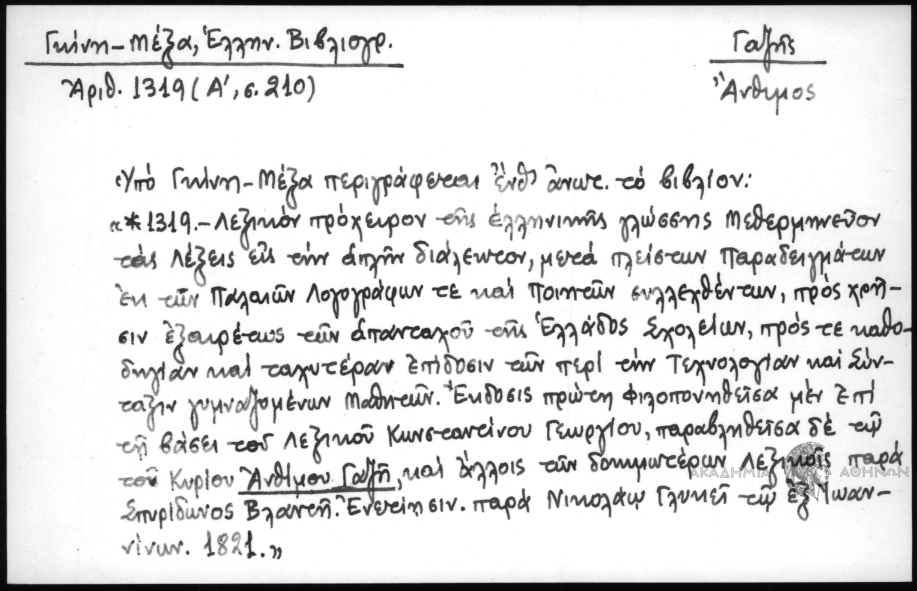 Γκίνη-Μέξα, Ἑλλην. Βιβλιογρ.
Ἀριθ. 1319 (Α', σ. 210)
Γαζῆς
Ἄνθιμος
Ὑπό Γκίνη-Μέξα περιγράφεται ἔνθ' ἀνωτ. τό βιβλίον:
«*1319.- Λεξικόν πρόχειρον τῆς ἑλληνικῆς γλώσσης Μεθερμηνεῦον
τάς Λέξεις εἰς τήν ἁπλῆν διάλεκτον, μετά πλείστων Παραδειγμάτων
ἐκ τῶν Παλαιῶν Λογογράφων τε καί Ποιητῶν συλλεχθέντων, πρός χρῆ-
σιν ἐξαιρέτως τῶν ἁπανταχοῦ τῆς Ἑλλάδος Σχολείων, πρός τε καθο-
δηγίαν καί ταχυτέραν Ἐπίδοσιν τῶν περί τήν Τεχνολογίαν καί Σύν-
ταξιν γυμναζομένων Μαθητῶν. Ἔκδοσις πρώτη Φιλοπονηθεῖσα μέν Ἐπί
τῇ βάσει τοῦ Λεξικοῦ Κωνσταντίνου Γεωργίου, παραβληθεῖσα δέ τῷ
τοῦ Κυρίου Ἀνθίμου Γαζῆ, καί ἄλλοις τῶν δοκιμωτέρων Λεξικοῖς παρά
Σπυρίδωνος Βλαντῆ. Ἐνετίησιν. παρά Νικολάῳ Γλυκεῖ τῷ ἐξ Ἰωαν-
νίνων. 1821.»
ΑΚΑΔΗΜΙΑ ΑΘΗΝΩΝ